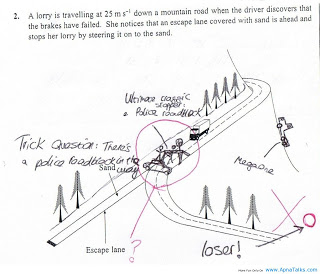 2. A lorry is travelling at 25 m s⁻¹ down a mountain road when the driver discovers that
the brakes have failed. She notices that an escape lane covered with sand is ahead and
stops her lorry by steering it on to the sand.
Ultimate traffic
stopper:
a Police roadblock
Trick Question: There's
a police roadblock in the
way
Sand
Megaone
Escape lane
?
loser!
X O
Have Fun Only On www.ApnaTalks.com